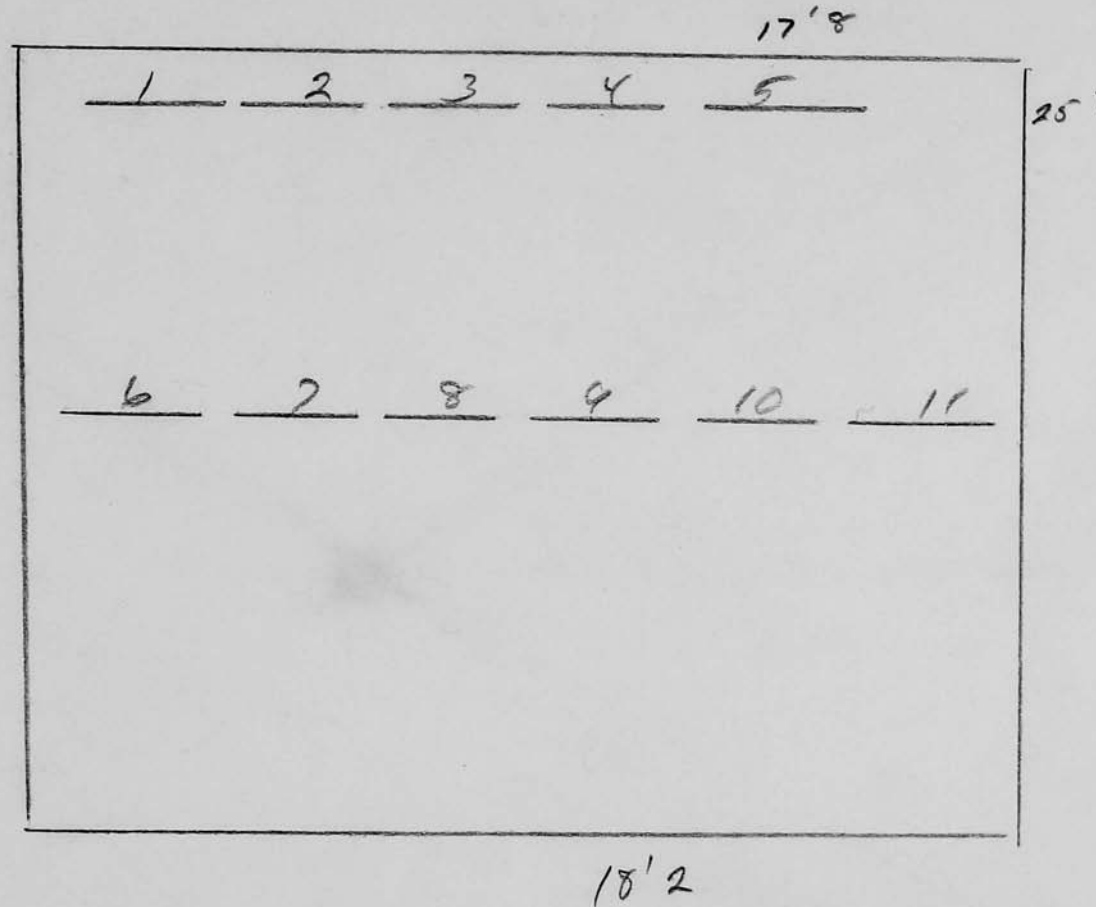 17'8
1 2 3 4 5
25'
6 7 8 9 10 11
18'2